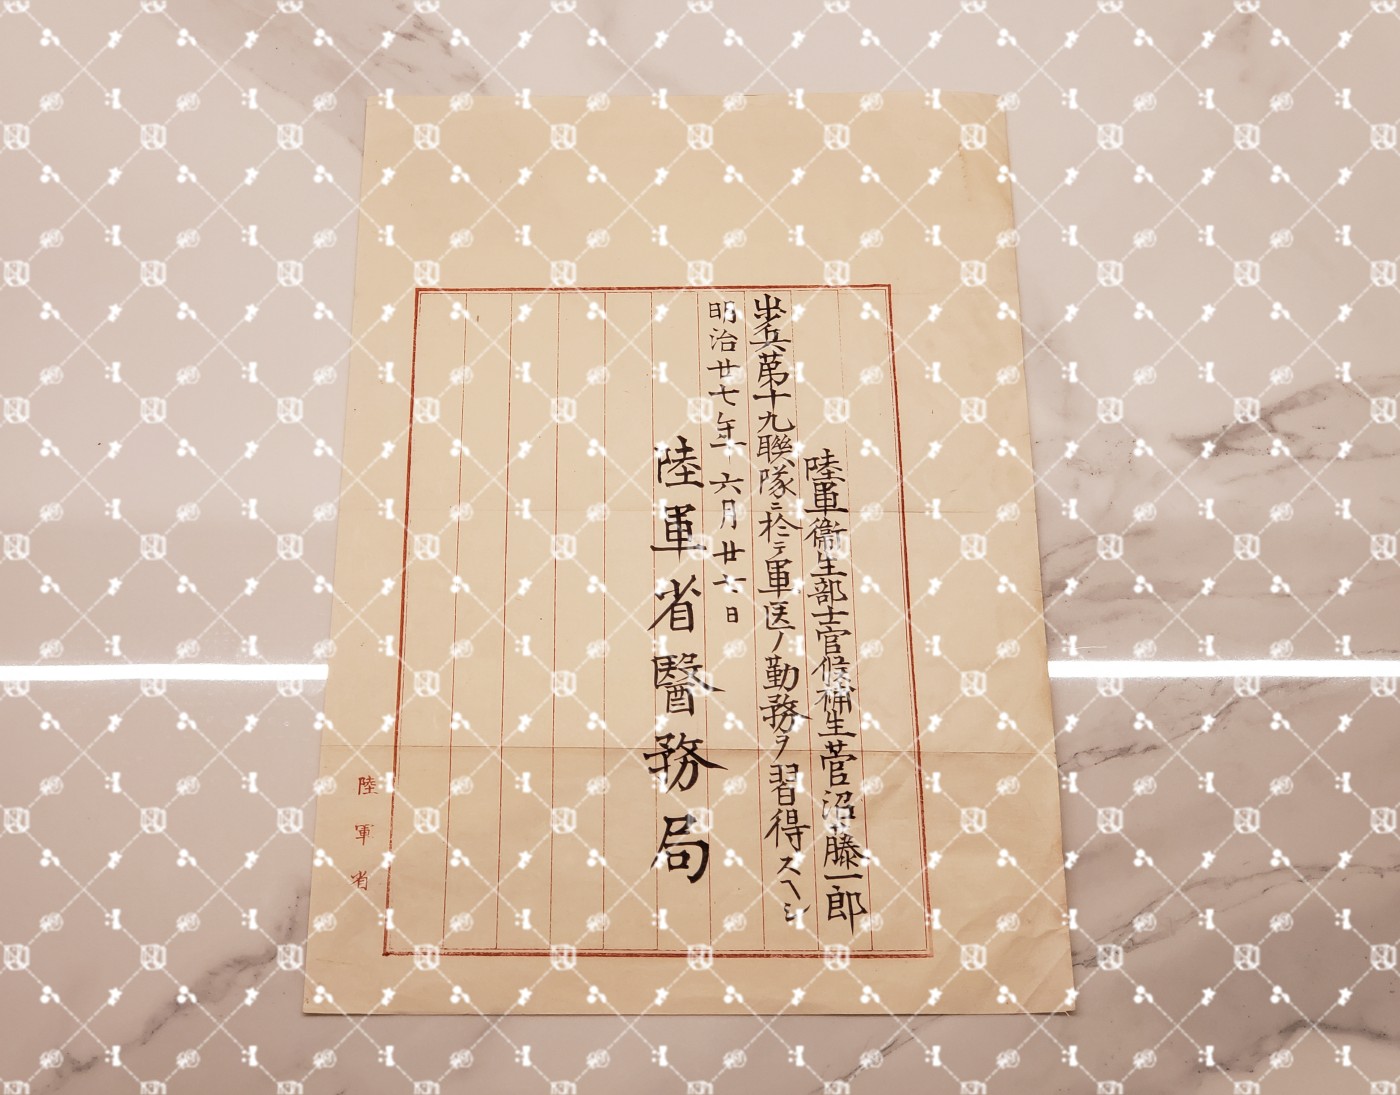 陸軍衞生部士官候補生菅沼藤一郎
歩兵第十九聯隊ニ於テ軍医ノ勤務ヲ習得スヘシ
明治廿七年六月廿六日
陸軍省醫務局
陸軍省